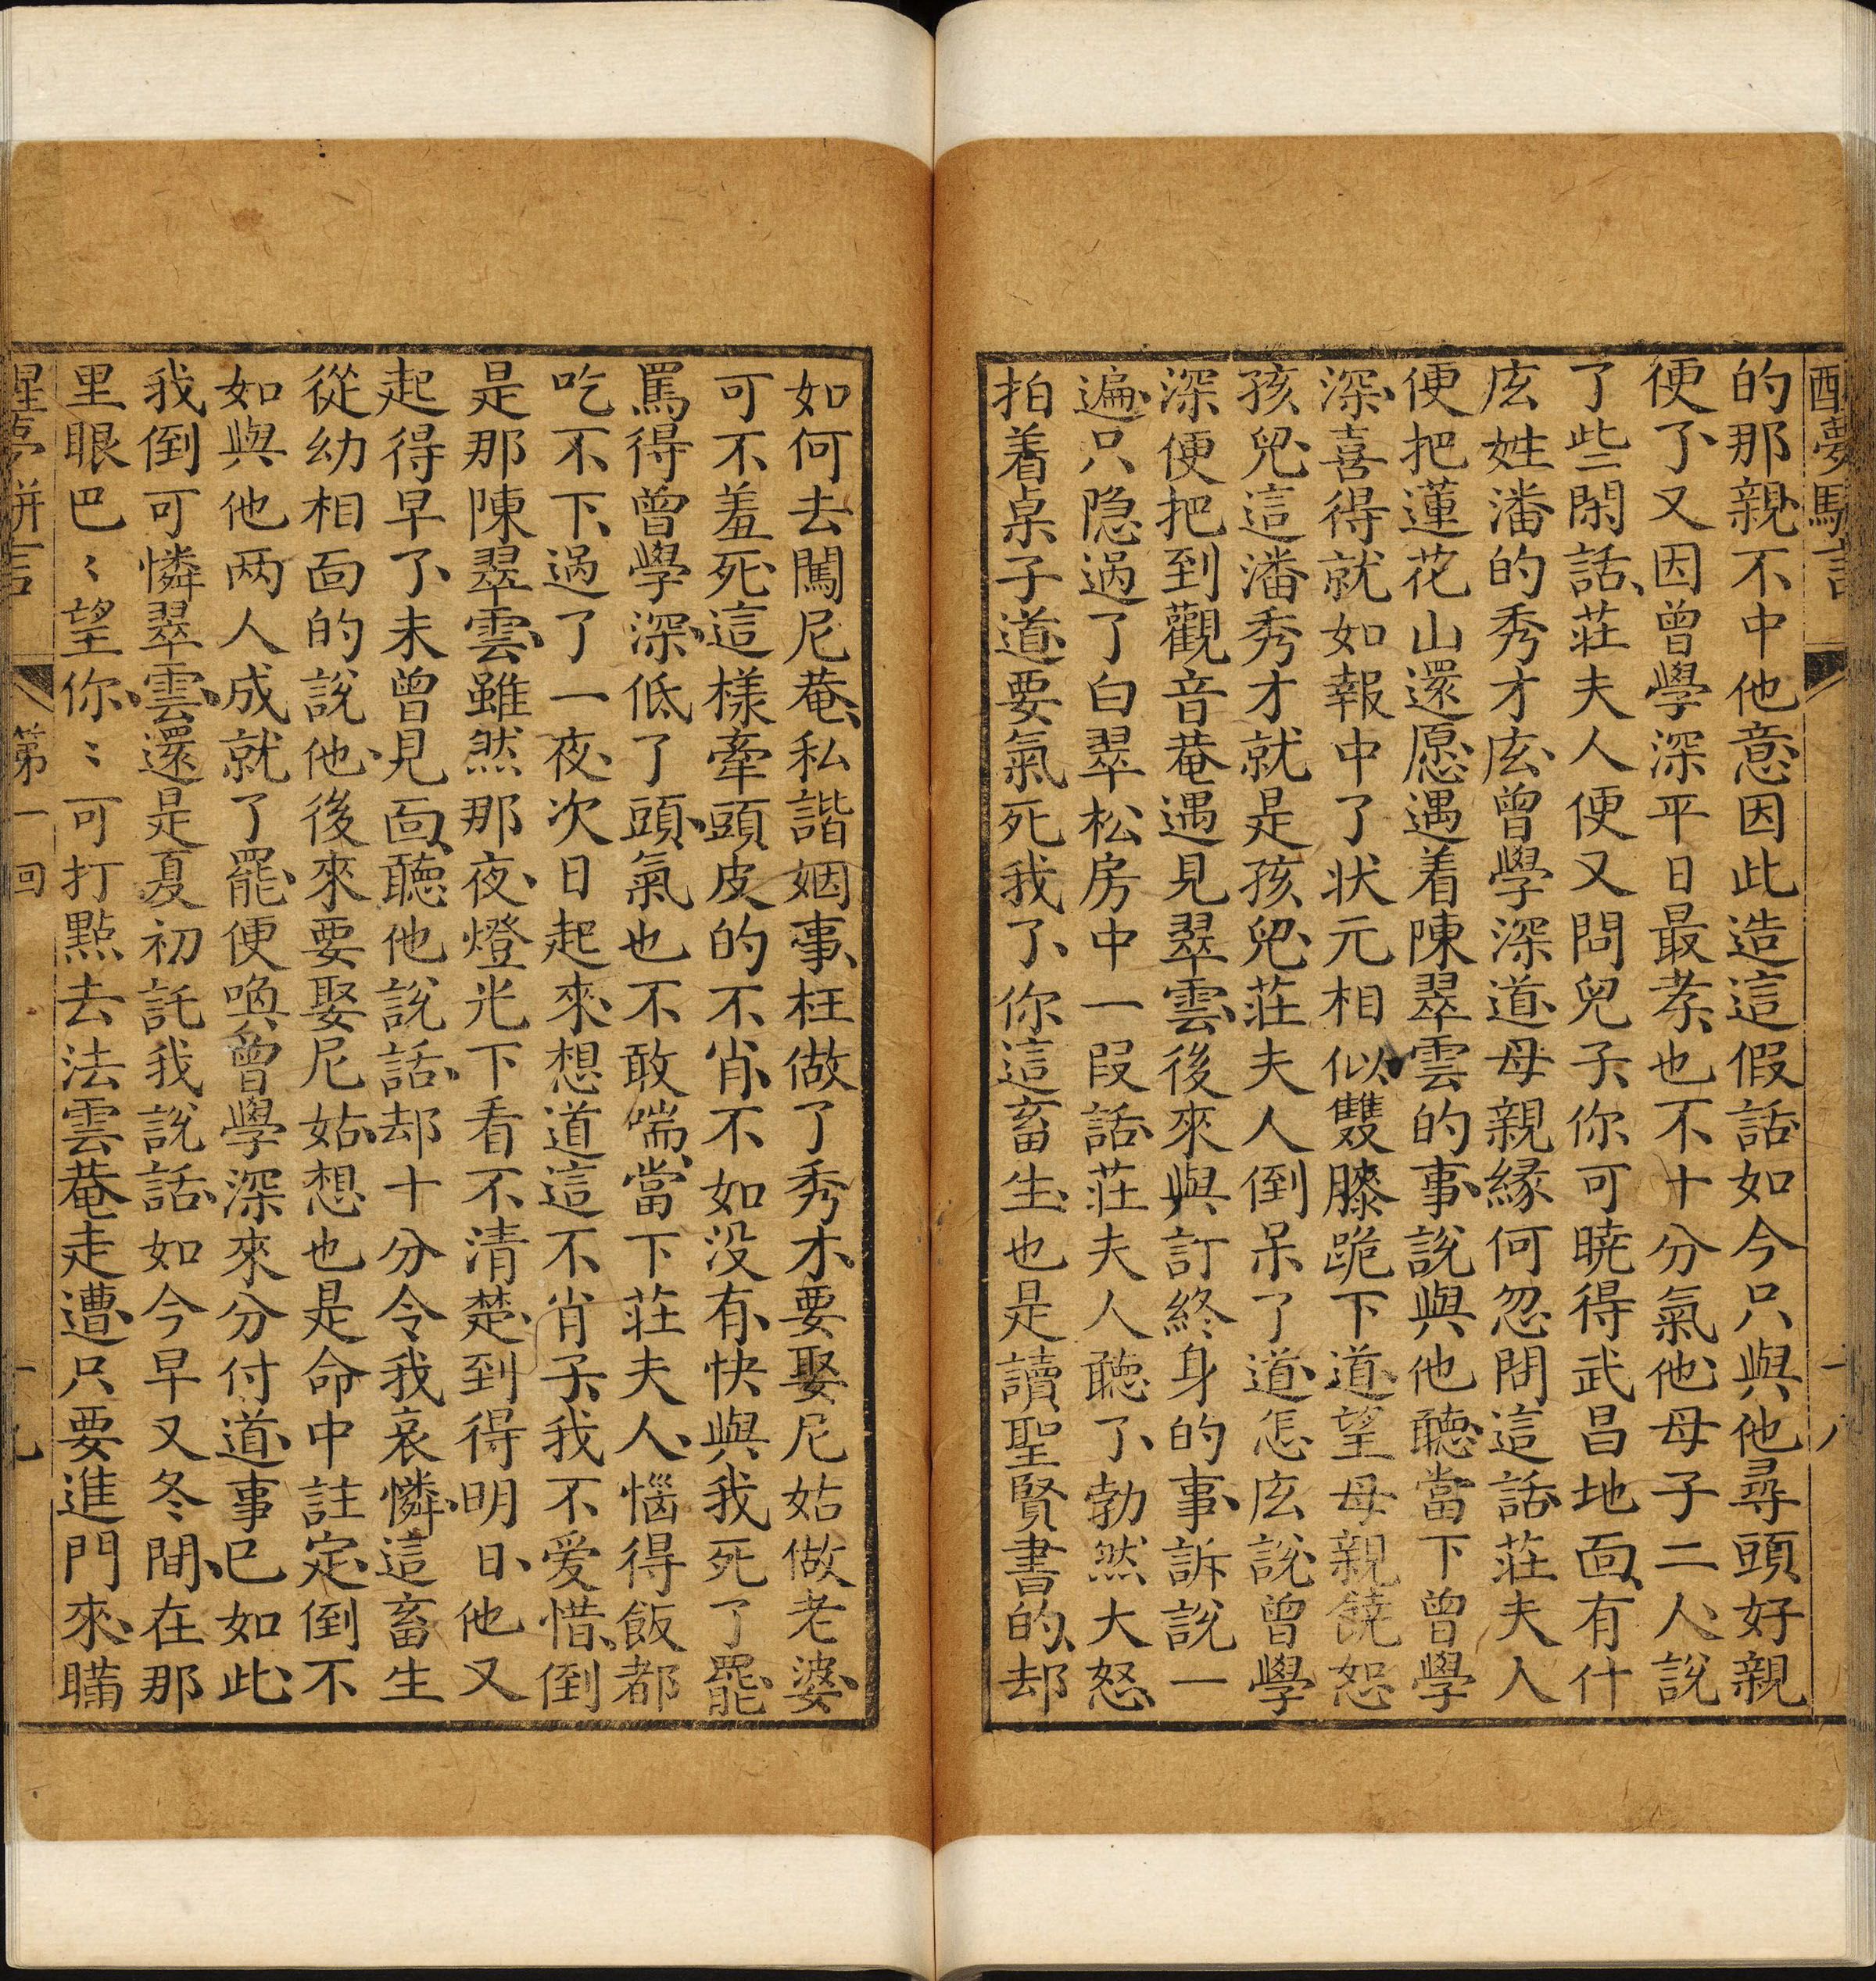 醒夢駢言
一八
的那親、不中他意、因此造這假話、如今只與他尋頭好親
便了、又因曾學深平日最孝、也不十分氣他、母子二人、說
了些閑話、莊夫人便又問兒子、你可曉得武昌地面、有什
庅姓潘的秀才庅、曾學深道、母親緣何忽問這話、莊夫人
便把蓮花山還愿、遇着陳翠雲的事、說與他聽、當下曾學
深、喜得就如報中了状元相似、雙膝跪下道、望母親饒恕
孩兒、這潘秀才就是孩兒、莊夫人倒呆了、道、怎庅說、曾學
深便把到觀音菴遇見翠雲、後來與訂終身的事、訴說一
遍、只隐過了白翠松房中一叚話、莊夫人聽了、勃然大怒、
拍着桌子道、要氣死我了、你這畜生、也是讀聖賢書的、却
如何去闖尼菴、私諧姻事、枉做了秀才、要娶尼姑做老婆、
可不羞死、這樣牽頭皮的不肖、不如没有、快與我死了罷、
罵得曾學深、低了頭、氣也不敢喘、當下莊夫人、惱得飯都
吃不下、過了一夜、次日起來、想道這不肖子、我不爱惜、倒
是那陳翠雲、雖然那夜、燈光下看不清楚、到得明日、他又
起得早了、未曾見面、聽他說話、却十分令我哀憐、這畜生
從幼相面的說他、後來要娶尼姑、想也是命中註定、倒不
如與他两人成就了罷、便喚曾學深來分付道、事已如此、
我倒可憐翠雲、還是夏初託我說話、如今早又冬間、在那
里眼巴〻望你〻可打點去法雲菴走遭、只要進門來、瞞
醒夢駢言
第一回
一九